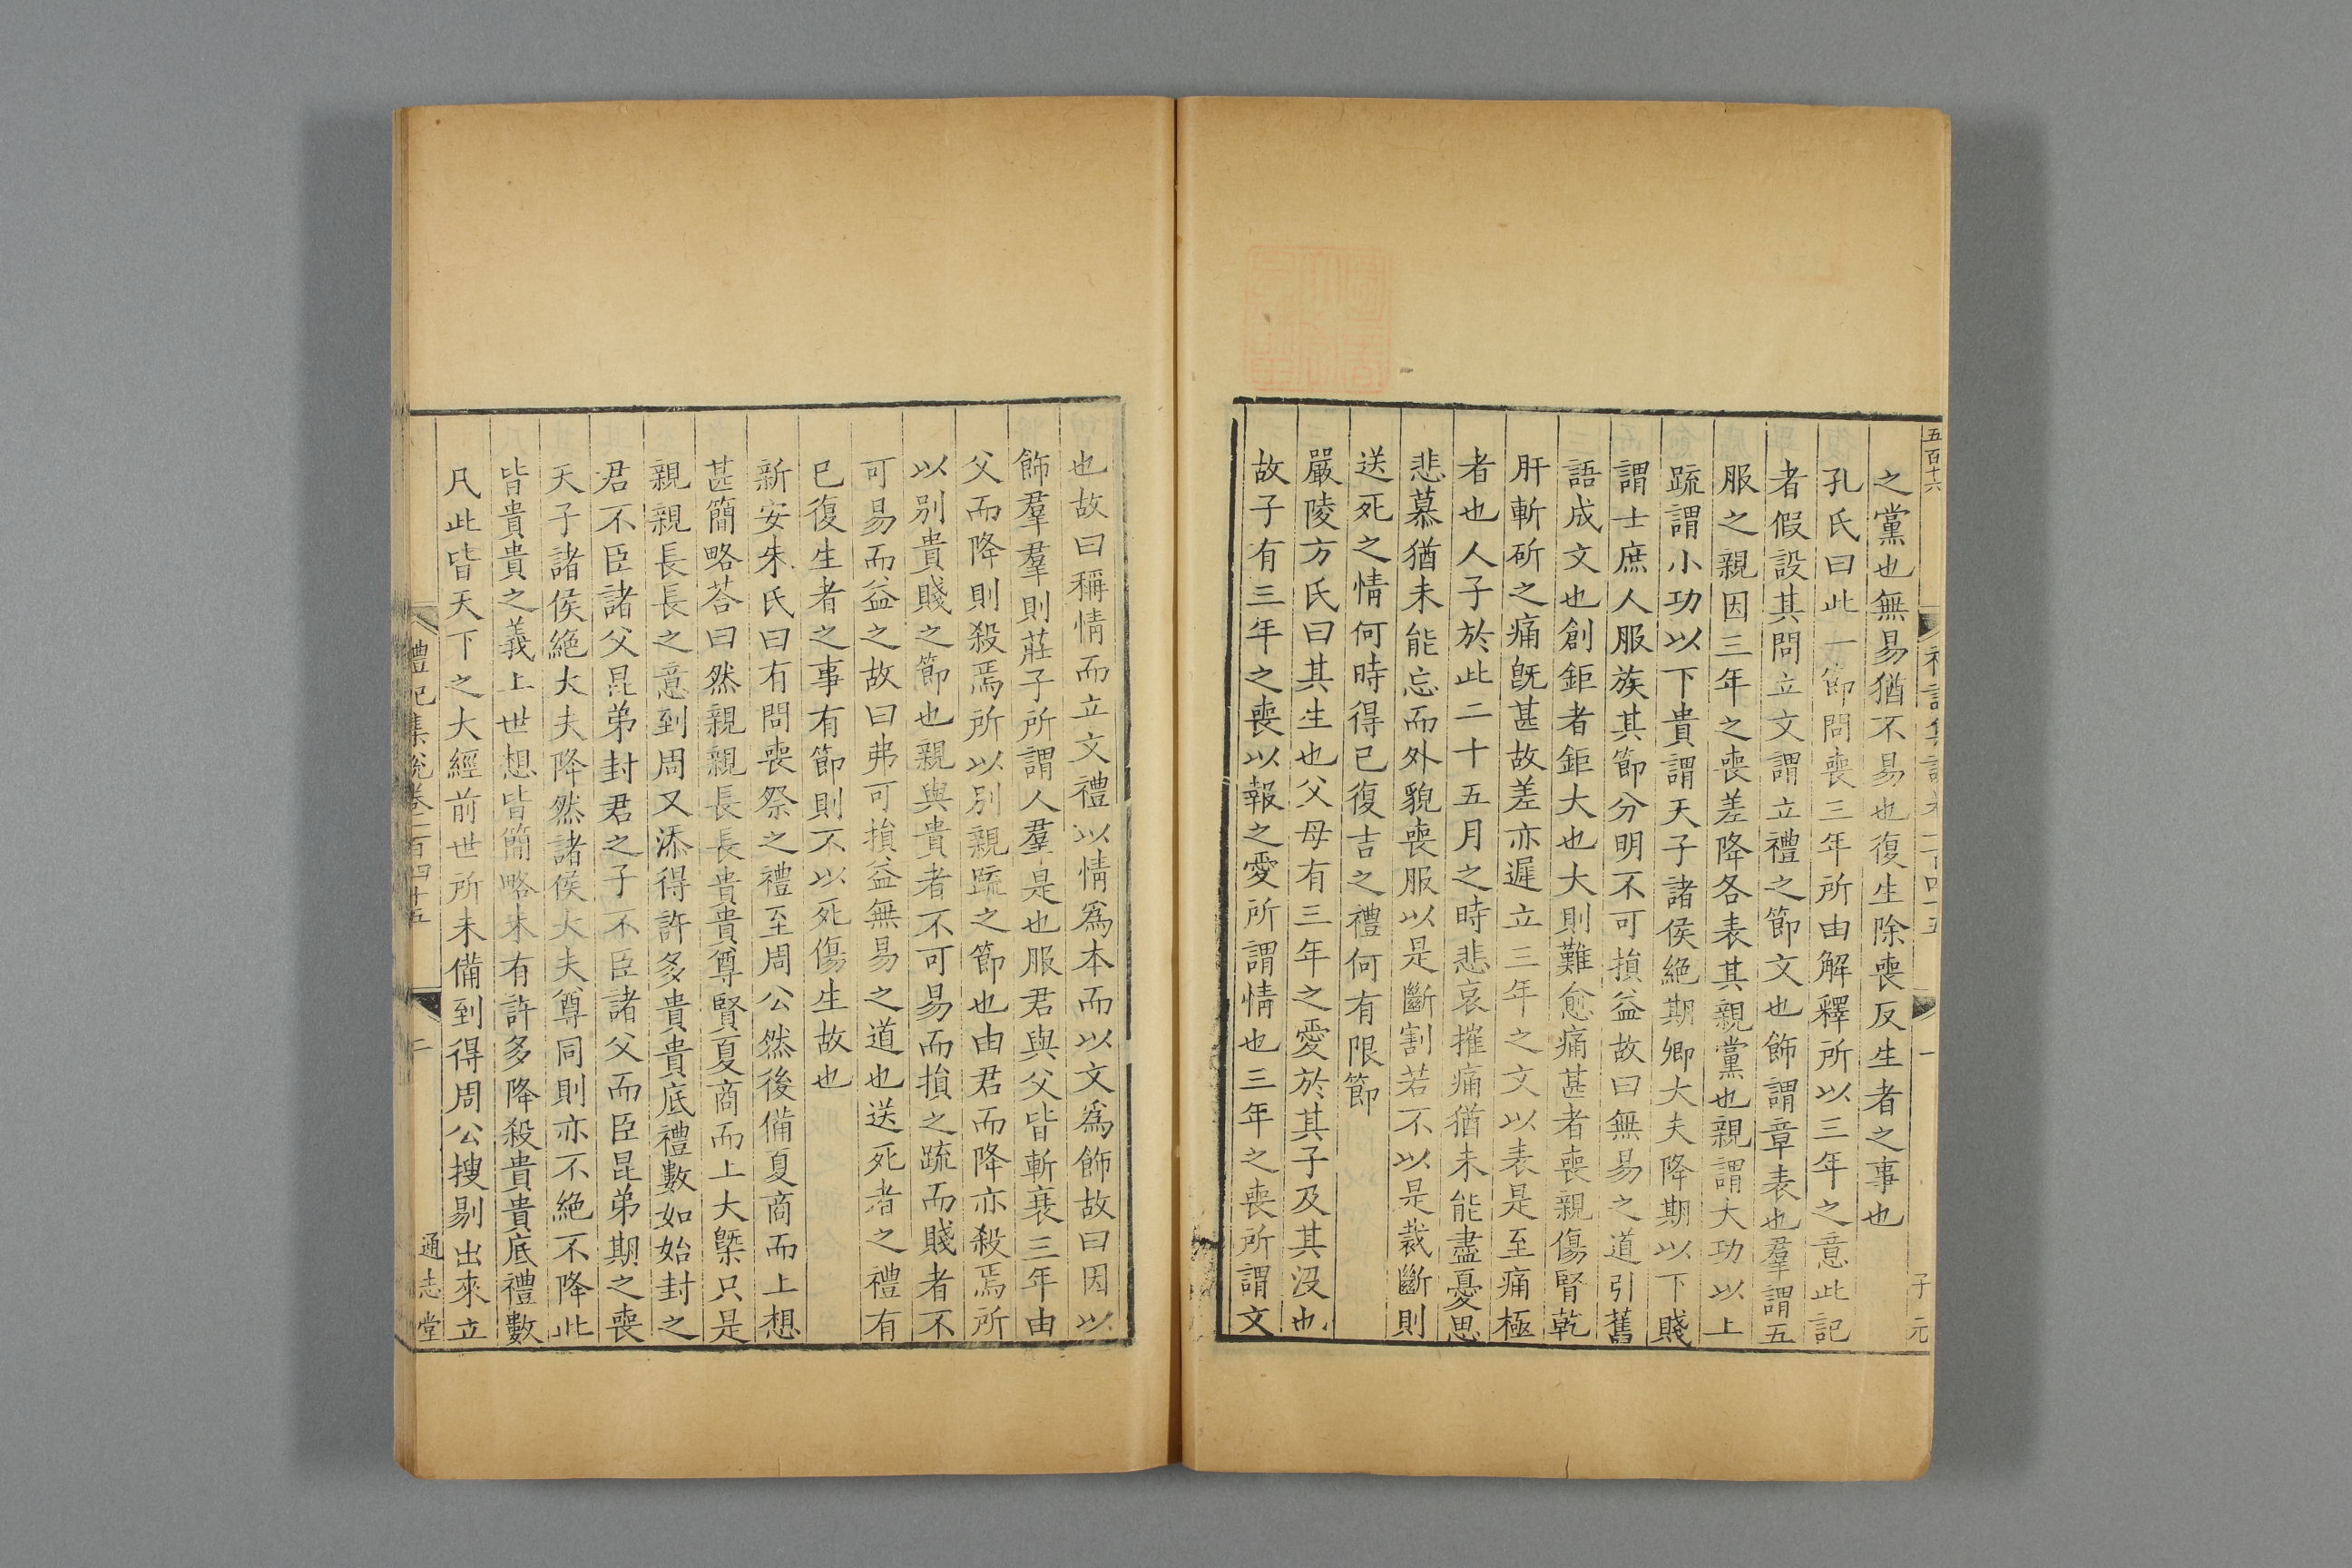 五百十六
子元
之黨也無易猶不易也復生除喪反生者之事也
孔氏曰此一節問喪三年所由解釋所以三年之意此記
者假設其問立文謂立禮之節文也飾謂章表也羣謂五
服之親因三年之喪差降各表其親黨也親謂大功以上
疏謂小功以下貴謂天子諸侯絶期卿大夫降期以下賤
謂士庶人服族其節分明不可損益故曰無易之道引舊
語成文也創鉅者鉅大也大則難愈痛甚者喪親傷腎乾
肝斬斫之痛旣甚故差亦遲立三年之文以表是至痛極
者也人子於此二十五月之時悲哀摧痛猶未能盡憂思
悲慕猶未能忘而外貌喪服以是斷割若不以是裁斷則
送死之情何時得已復吉之禮何有限節
嚴陵方氏曰其生也父母有三年之愛於其子及其沒也
故子有三年之喪以報之愛所謂情也三年之喪所謂文
也故曰稱情而立文禮以情爲本而以文爲飾故曰因以
飾羣羣則莊子所謂人羣是也服君與父皆斬衰三年由
父而降則殺焉所以別親疏之節也由君而降亦殺焉所
以別貴賤之節也親與貴者不可易而損之疏而賤者不
可易而益之故曰弗可損益無易之道也送死者之禮有
已復生者之事有節則不以死傷生故也
新安朱氏曰有問喪祭之禮至周公然後備夏商而上想
甚簡略荅曰然親親長長貴貴尊賢夏商而上大槩只是
親親長長之意到周又添得許多貴貴底禮數如始封之
君不臣諸父昆弟封君之子不臣諸父而臣昆弟期之喪
天子諸侯絶大夫降然諸侯大夫尊同則亦不絶不降此
皆貴貴之義上世想皆簡略未有許多降殺貴貴底禮數
凡此皆天下之大經前世所未備到得周公搜剔出來立
禮記集說卷一百四十五
二
通志堂